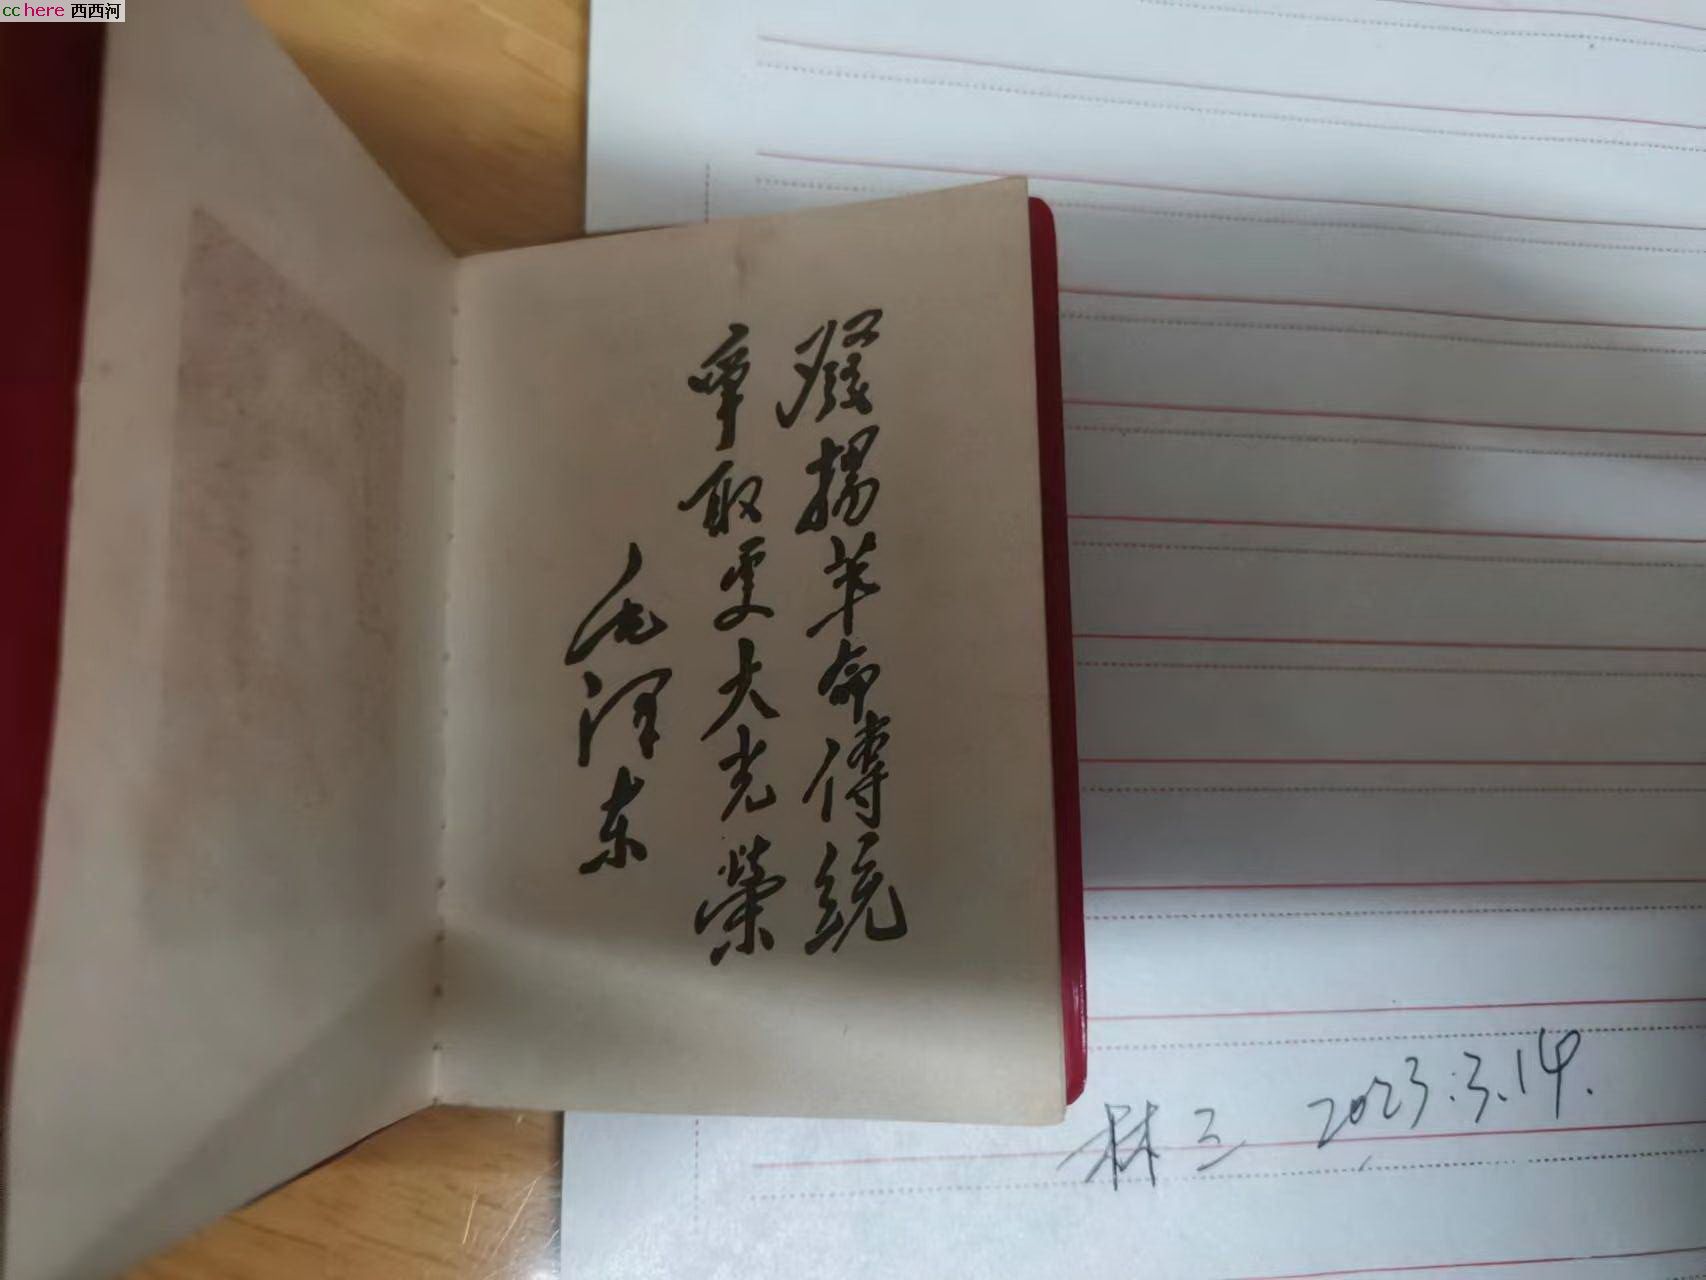 cchere 西西河
發揚革命傳統
爭取更大光榮
毛泽东
林三 2023.3.14.